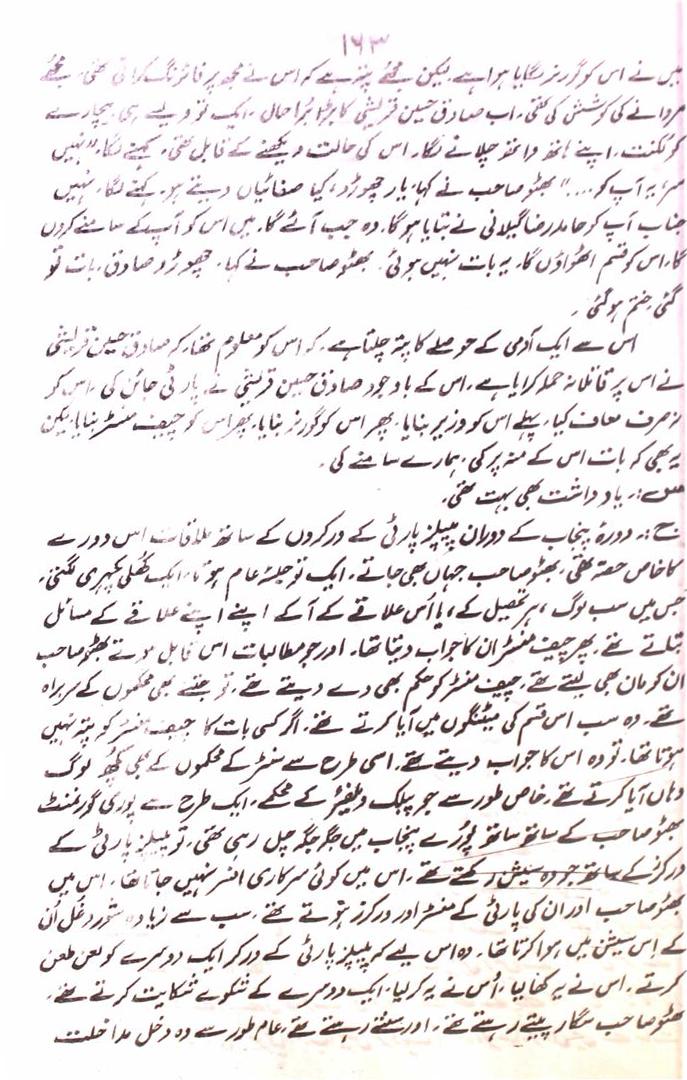 ۱۶۳
میں نے اس کو گورنر لگایا ہوا ہے۔ لیکن مجھے پتہ ہے کہ اس نے مجھ پر فائرنگ کرائی تھی۔ مجھے
مروانے کی کوشش کی تھی۔ اب صادق حسین قریشی کا بڑا بُرا حال۔ ایک تو ویسے ہی بیچارے
کو لکنت، اپنے ہاتھ واتھ چلانے لگا۔ اس کی حالت دیکھنے کے قابل تھی۔ کہنے لگا، "نہیں
سر، یہ آپ کو ...." بھٹو صاحب نے کہا، یار چھوڑو، کیا صفائیاں دیتے ہو۔ کہنے لگا۔ نہیں
جناب آپ کو حامد رضا گیلانی نے بتایا ہوگا۔ وہ جب آئے گا۔ میں اس کو آپ کے سامنے کروں
گا۔ اس کو قسم اٹھواؤں گا۔ یہ بات نہیں ہوئی۔ بھٹو صاحب نے کہا۔ چھوڑو صادق۔ بات تو
گئی۔ ختم ہوگئی۔
اس سے ایک آدمی کے حوصلے کا پتہ چلتا ہے۔ کہ اس کو معلوم تھا، کہ صادق حسین قریشی
نے اس پر قاتلانہ حملہ کرایا ہے۔ اس کے باوجود صادق حسین قریشی نے پارٹی جائن کی۔ اس کو
نہ صرف معاف کیا۔ پہلے اس کو وزیر بنایا۔ پھر اس کو گورنر بنایا۔ پھر اس کو چیف منسٹر بنایا۔ لیکن
یہ بھی کہ بات اس کے منہ پر کی۔ ہمارے سامنے کی۔
س:۔ یادداشت بھی بہت تھی۔
ج:۔ دورۂ پنجاب کے دوران پیپلز پارٹی کے ورکروں کے ساتھ ملاقات اس دورے
کا خاص حصہ تھی۔ بھٹو صاحب جہاں بھی جاتے۔ ایک تو جلسۂ عام ہوتا۔ ایک کھلی کچہری لگتی۔
جس میں سب لوگ، ہر تحصیل کے، یا اُس علاقے کے آکے اپنے اپنے علاقے کے مسائل
بتلاتے تھے۔ پھر چیف منسٹر ان کا جواب دیتا تھا۔ اور جو مطالبات اس قابل ہوتے بھٹو صاحب
ان کو مان بھی لیتے تھے۔ چیف منسٹر کو حکم بھی دے دیتے تھے۔ تو جتنے بھی محکموں کے سربراہ
تھے۔ وہ سب اس قسم کی میٹنگوں میں آیا کرتے تھے۔ اگر کسی بات کا چیف منسٹر کو پتہ نہیں
ہوتا تھا۔ تو وہ اس کا جواب دیتے تھے۔ اسی طرح سے سنٹر کے محکموں کے بھی کچھ لوگ
وہاں آیا کرتے تھے۔ خاص طور سے جو پبلک ویلفیئر کے محکمے۔ ایک طرح سے پوری گورنمنٹ
بھٹو صاحب کے ساتھ ساتھ پُورے پنجاب میں جگہ جگہ چل رہی تھی۔ تو پیپلز پارٹی کے
ورکرز کے ساتھ جو وہ سیشن رکھتے تھے۔ اس میں کوئی سرکاری افسر نہیں جاتا تھا۔ اس میں
بھٹو صاحب اور ان کی پارٹی کے منسٹر اور ورکرز ہوتے تھے۔ سب سے زیادہ شور و غل اُن
کے اِس سیشن میں ہوا کرتا تھا۔ وہ اس لیے کہ پیپلز پارٹی کے ورکر ایک دوسرے کو لعن طعن
کرتے۔ اس نے یہ کھا لیا۔ اُس نے یہ کرلیا۔ ایک دوسرے کے شکوے شکایت کرتے تھے۔
بھٹو صاحب سگار پیتے رہتے تھے۔ اور سنتے رہتے تھے۔ عام طور سے وہ دخل مداخلت